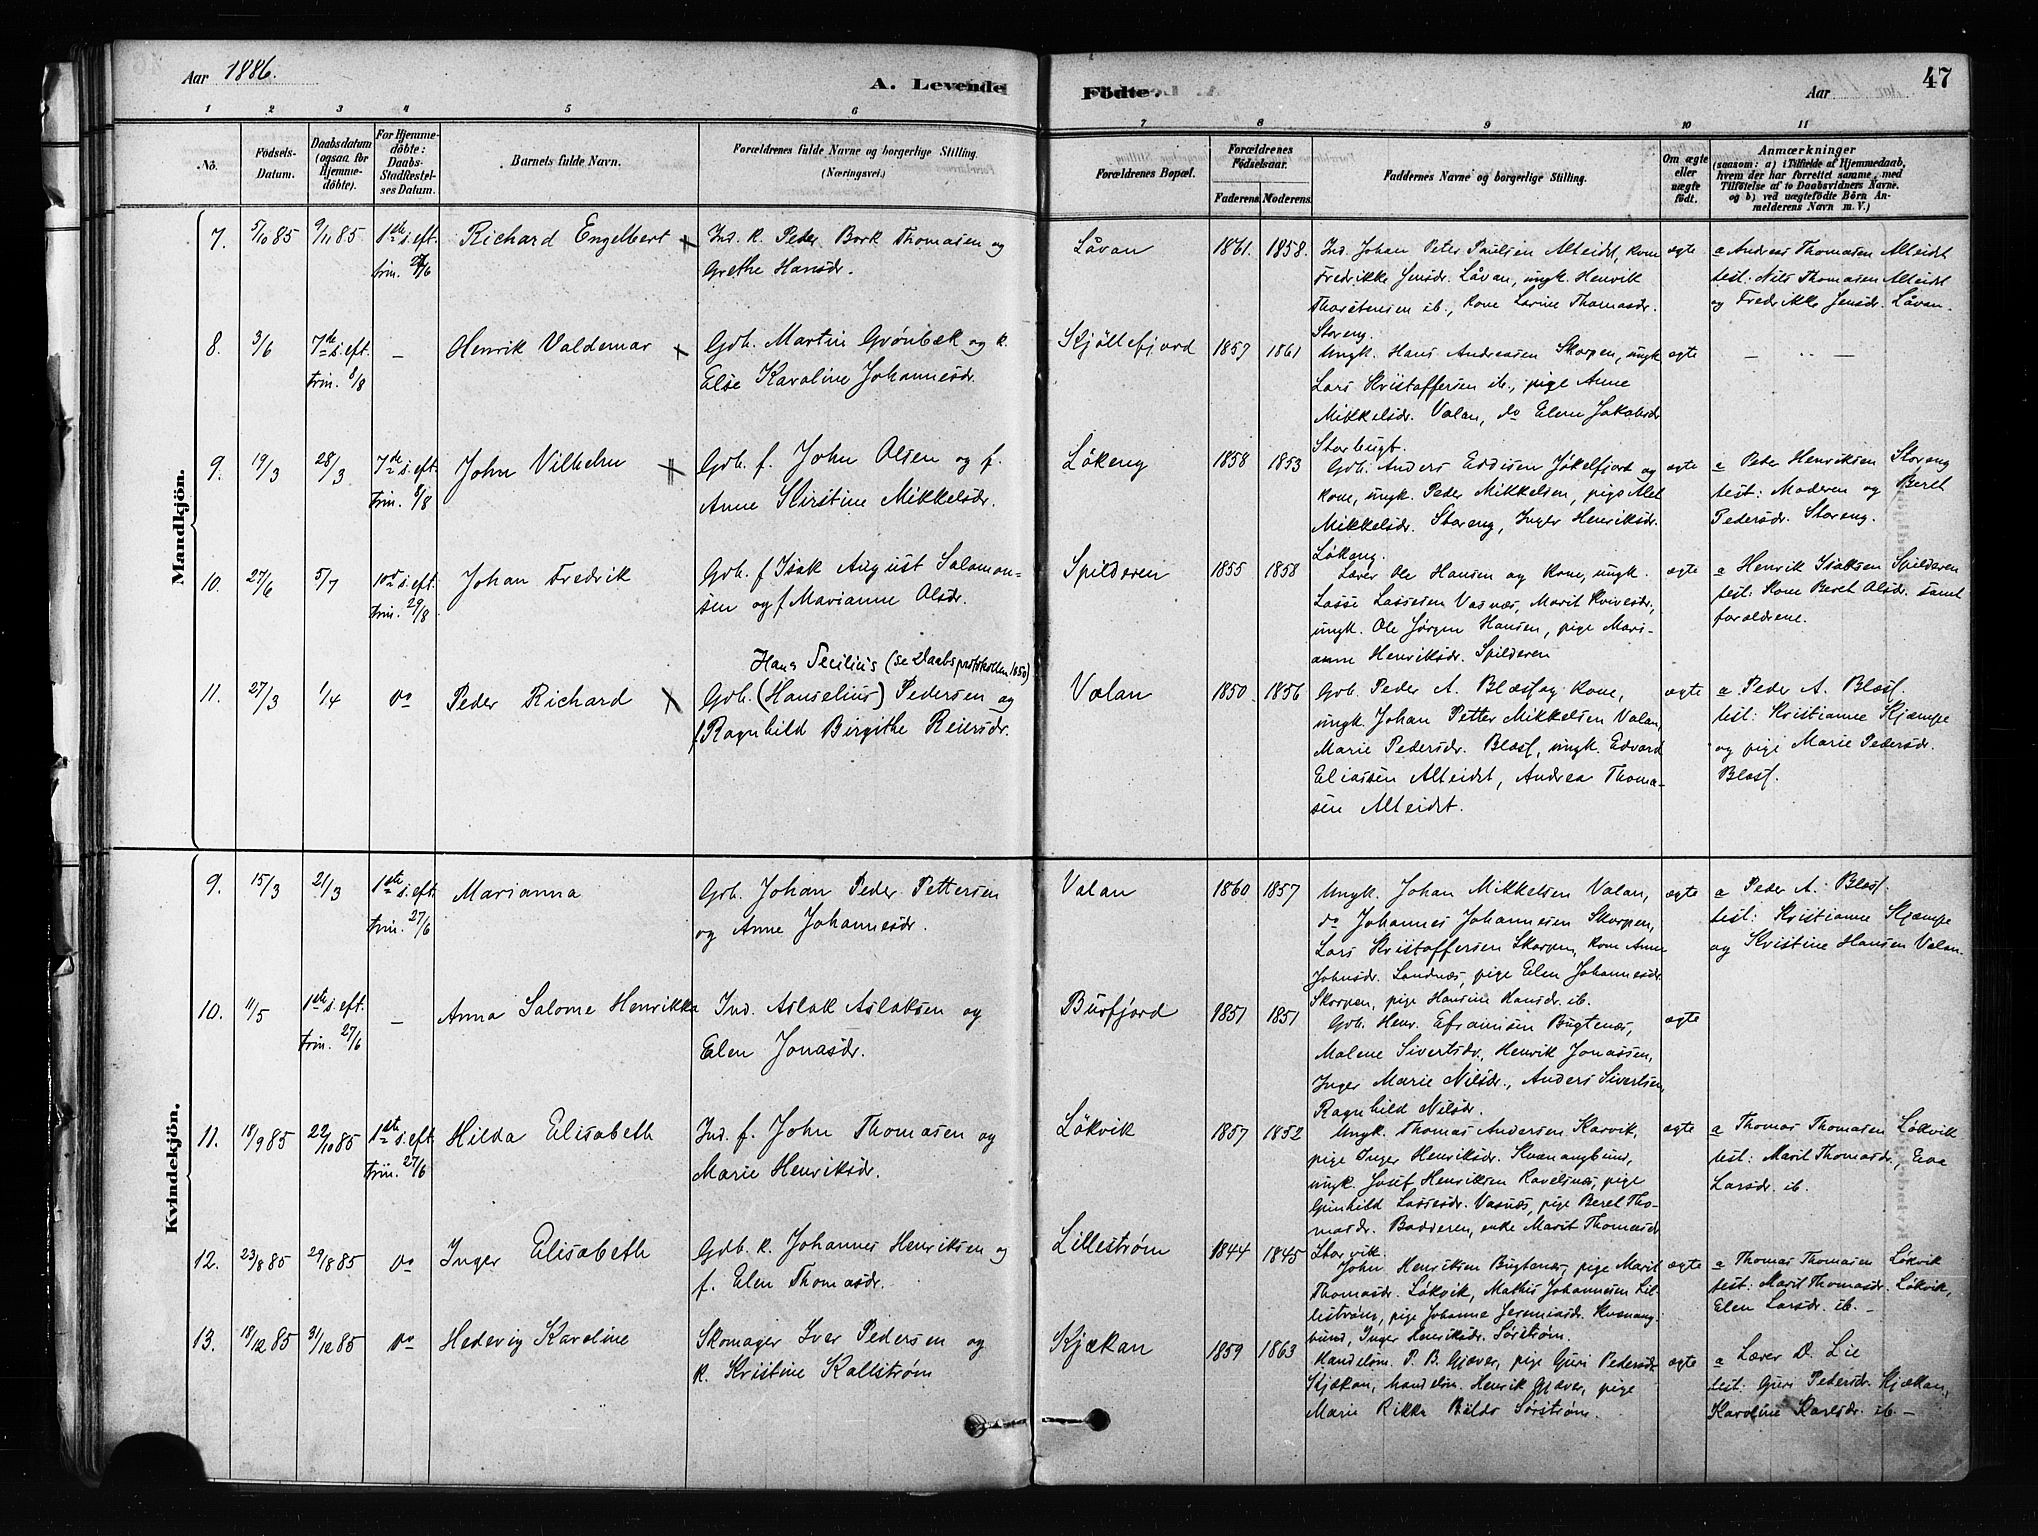 Aar 1886.
A. Levende Fødte.
Aar
47
1 2 3 4 5 6 7 8 9 10 11
No.
Fødsels-Datum.
Daabsdatum (ogsaa for Hjemme-døbte).
For Hjemme-døbte: Daabs-Stadfæstel-ses Datum.
Barnets fulde Navn.
Forældrenes fulde Navne og borgerlige Stilling.
(Næringsvei.)
Forældrenes Bopæl.
Forældrenes Fødselsaar.
Faderens. Moderens.
Faddernes Navne og borgerlige Stilling.
Om ægte eller uægte født.
Anmærkninger
(saasom: a) i Tilfælde af Hjemmedaab,
hvem der har forrettet samme, med
Tilføielse af to Daabsvidners Navne.
og b) ved uægtefødte Børn An-
melderens Navn m. V.)
Mandkjøn.
7. 5/10 85 9/11 85 1ste s. eft. Richard Engelbert × Ind. k. Peder Bork Thomasen og Låvan 1861. 1858. Ind. Johan Peter Paulsen Alteidet, kone ægte a Andreas Thomasen Alteidet
trin. 27/6 Grethe Hansdr. Fredrikke Jensdr. Låvan, ungk. Henrik test: Nils Thomasen Alteidet
Thorstensen ib., kone Larine Thomasdr. og Fredrikke Jensdr. Låvan.
Storeng.
8. 3/6 7de s. eft. — Henrik Valdemar × Gdb. Martin Grønbæk og k. Skjöllefjord 1857 1861 Ungk. Hans Andreasen Skorpen, ungk ægte — " —
trin. 8/8 Else Karoline Johannesdr. Lars Kristoffersen ib., pige Anne
Mikkelsdr. Valan, do Elen Jakobsdr
Storbugt.
9. 19/3 28/3 7de s. eft. John Vilhelm Gdb. f. John Olsen og f. Løkeng 1858 1853 Gdb. Anders Eddisen Jøkelfjord og ægte a Peder Henriksen Storeng
trin. 8/8 Anne Kirstine Mikkelsdr. kone, ungk. Peder Mikkelsen, pige Alet test: Moderen og Beret
Mikkelsdr. Storeng, Inger Henriksdr. Pedersdr. Storeng.
Løkeng.
10. 27/6 5/7 10de s. eft. Johan Fredrik Gdb. f Isak August Salamon- Spilderen 1855 1858 Lærer Ole Hansen og kone, ungk. ægte a Henrik Isaksen Spilderen
trin. 29/8 sen og f Marianne Olsdr. Lasse Lassesen Vasnæs, Marit Kvivesdr, test: Kone Beret Olsdr. samt
ungk. Ole Jørgen Hansen, pige Mari- forældrene.
anne Henriksdr. Spilderen
Hans Cecilius (se Daabsprotokollen 1850)
11. 27/3 1/4 do Peder Richard × Gdb. (Hanselius) Pedersen og Valan 1850 1856 Gdb. Peder A. Blæsf og kone, ægte a Peder A. Blæsf.
f Ragnhild Birgithe Reiersdr. ungk. Johan Petter Mikkelsen Valan, test: Kristianne Kjæmpe
Marie Pedersdr. Blæsf, ungk. Edvard og pige Marie Pedersdr.
Eliassen Alteidet, Andrea Thoma- Blæsf.
sen Alteidet.
Kvindekjøn.
9. 15/3 21/3 1ste s. eft. Marianna Gdb. Johan Peder Pettersen Valan 1860 1857 Ungk. Johan Mikkelsen Valan, ægte a Peder A. Blæsf.
trin. 27/6 og Anne Johannesdr. do Johannes Johannesen Skorpen, test: Kristianne Kjæmpe
Lars Kristoffersen Skorpen, kone Anne og Kristine Hansen Valan.
Johnsdr. Sandnæs, pige Elen Johannesdr
Skorpen, pige Hansine Hansdr. ib.
10. 11/5 1ste s. eft. — Anna Salome Henrikka Ind. Aslak Aslaksen og Burfjord 1851 1851 Gdb. Henr. Efraimsen Bugtenæs, ægte
trin. 27/6 Elen Jonasdr. Malene Sivertsdr., Henrik Jonassen,
Inger Marie Nilsdr., Anders Sivertsen,
Ragnhild Nilsdr.
11. 18/9 85 22/10 85 1ste s. eft Hilda Elisabeth Ind. f. John Thomasen og Løkvik 1857 1852 Ungk. Thomas Andersen Karvik, ægte a Thomas Thomasen Løkvik
trin. 27/6 Marie Henriksdr. pige Inger Henriksdr. Kvænangbund, test: Marit Thomasdr., Eva
ungk. Josef Henriksen Ravelsnæs, pige Larsdr. ib.
Gunhild Lassesdr. Vasnæs, pige Beret Tho-
masdr. Badderen, enke Marit Thomasdr
Storvik.
12. 23/8 85 29/8 85 do Inger Elisabeth Gdb. k. Johannes Henriksen og Lillestrøm 1844 1845 John Henriksen Bugtenæs, pige Marit ægte a Thomas Thomasen Løkvik
f. Elen Thomasdr. Thomasdr. Løkvik, Mathis Johannesen Lil- test: Marit Thomasdr. Løkvik,
lestrøm, pige Johanne Jeremiasdr. Kvænang- Elen Larsdr. ib. —
bund, Inger Henriksdr. Sørstrøm.
13. 18/12 85 31/12 85 do Hedevig Karoline Skomager Iver Pedersen og Kjækan 1859 1863 Handelsm. P. B. Gjæver, pige Guri Pedersdr ægte a Lærer D. Lie
k. Kristine Kallstrøm Kjækan, handelsm. Henrik Gjæver, pige test: Guri Pedersdr. Kjækan,
Marie Rikka Balds Sørstrøm. Karoline Karlsdr. ib. —